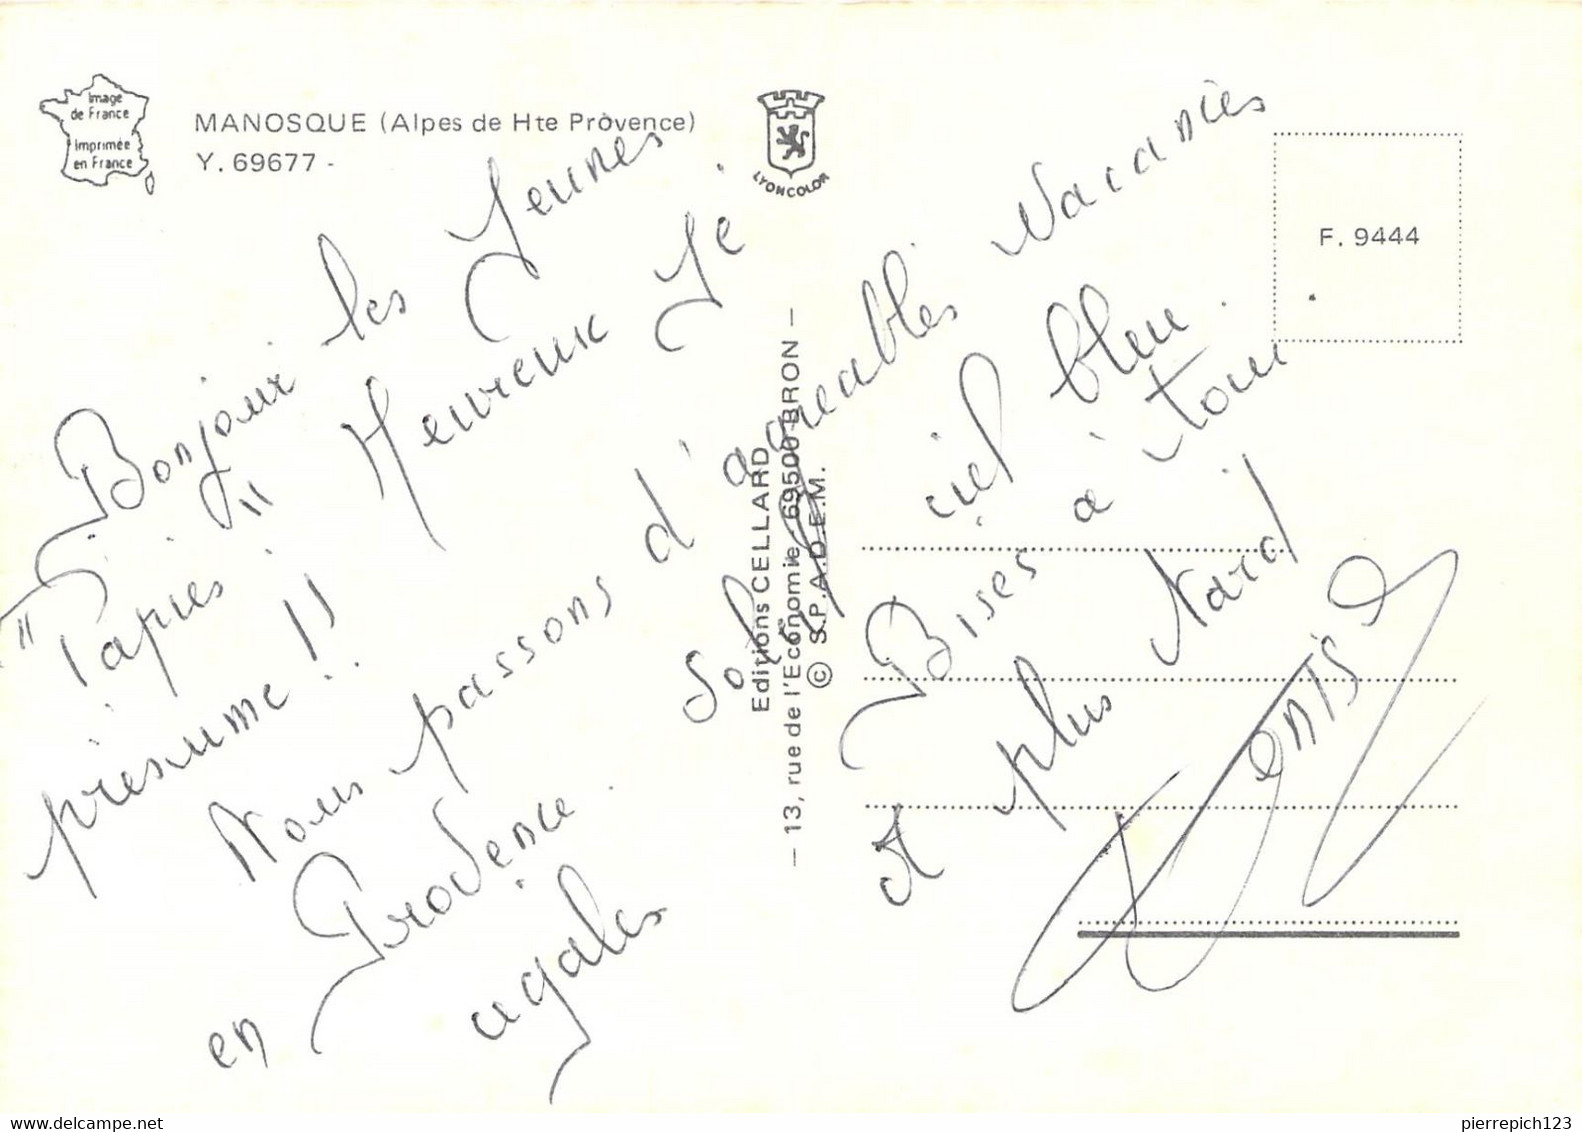 Image
de France
Imprimée
en France
MANOSQUE (Alpes de Hte Provence)
Y. 69677 -
LYONCOLOR
F. 9444
Bonjour les Jeunes
"Papies" Heureux Je
présume !!
Nous passons d'agreables vacances
en Provence
cigales
Soleil
ciel bleu.
Bises à tous
et plus Nard
Editions CELLARD
— 13, rue de l'Economie 69500 BRON —
© S.P.A.D.E.M.
pierrepich123